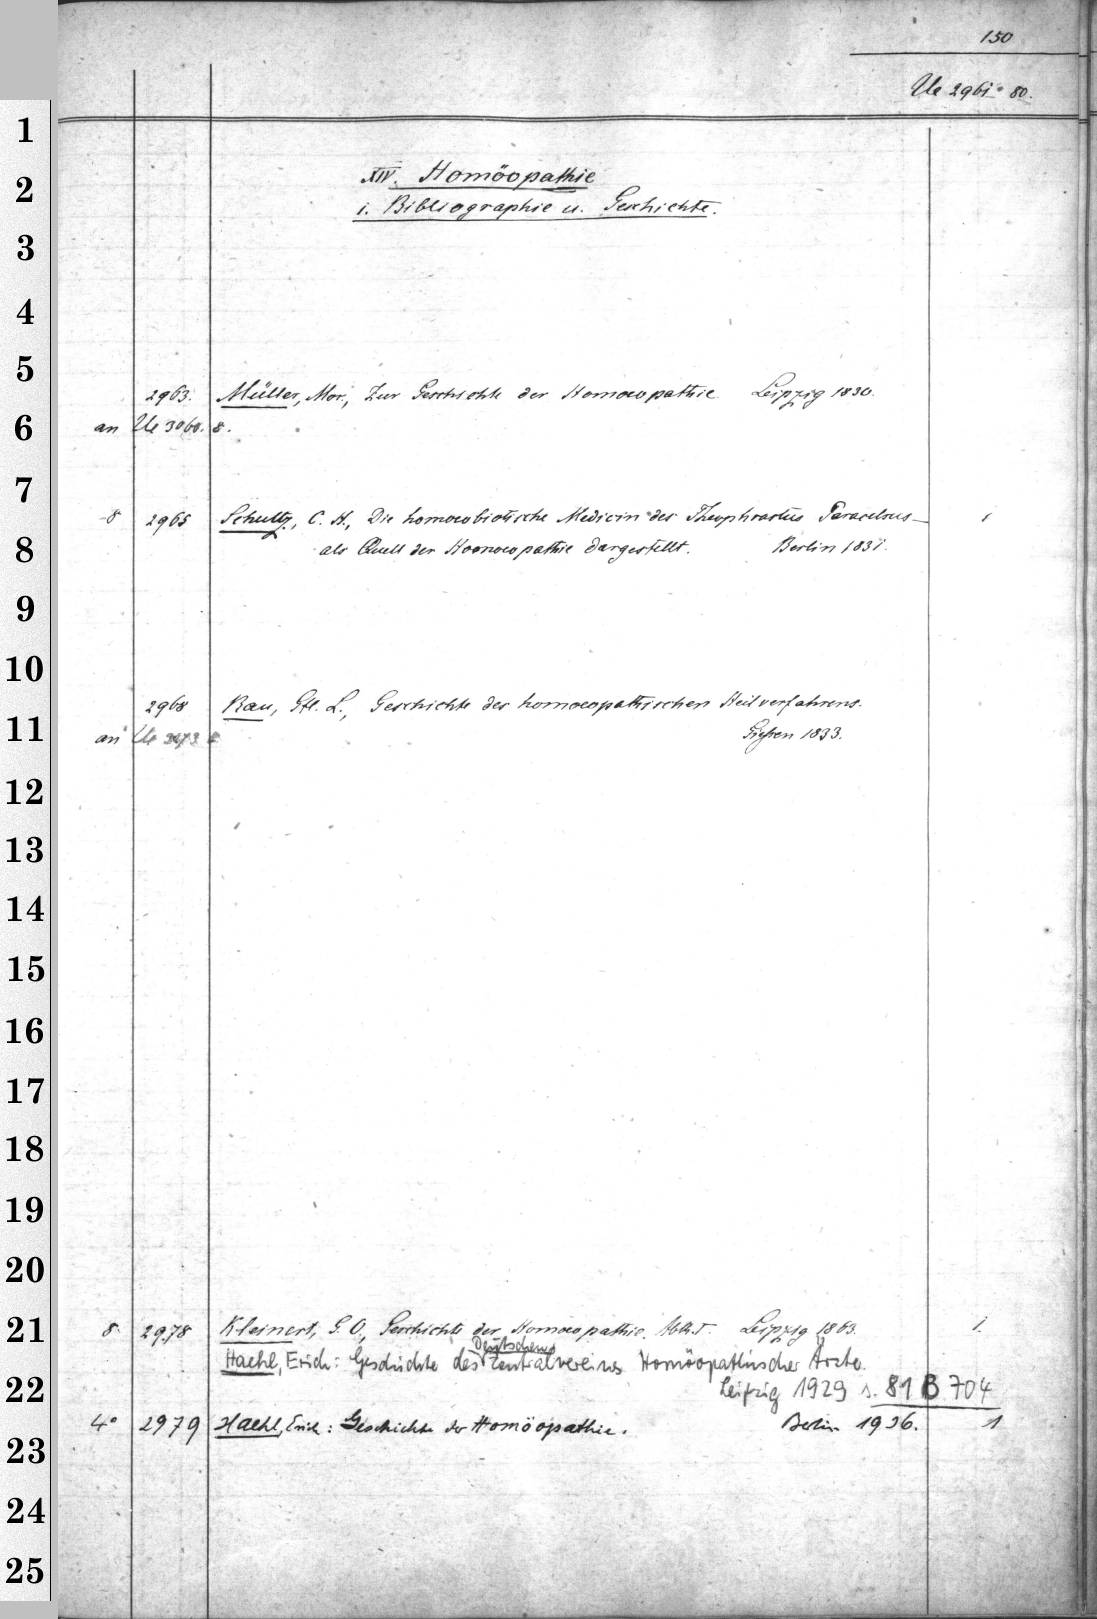 150
Ue 2961-80.
1
XIV. Homöopathie
2
1. Bibliographie u. Geschichte.
3
4
5
2963. Müller, Mor., Zur Geschichte der Homoeopathie Leipzig 1830.
6
an Ue 3060. 8.
7
8 2965 Schultz, C. H., Die homoeobiotische Medicin des Theophrastus Paracelsus 1
8
als Quell der Homoeopathie dargestellt. Berlin 1831.
9
10
2968 Rau, Gtl. L., Geschichte des homoeopathischen Heilverfahrens.
11
an Ue Gießen 1833.
12
13
14
15
16
17
18
19
20
21
8 2978 Kleinert, G. O., Geschichte der Homoeopathie Leipzig 1863. 1.
Deutschen
Haehl, Erich: Geschichte des Zentralvereins Homöopathischer Ärzte.
22
Leipzig 1929 s. 81 B 704
4° 2979 Haehl, Erich: Geschichte der Homöopathie. Berlin 1936. 1
23
24
25